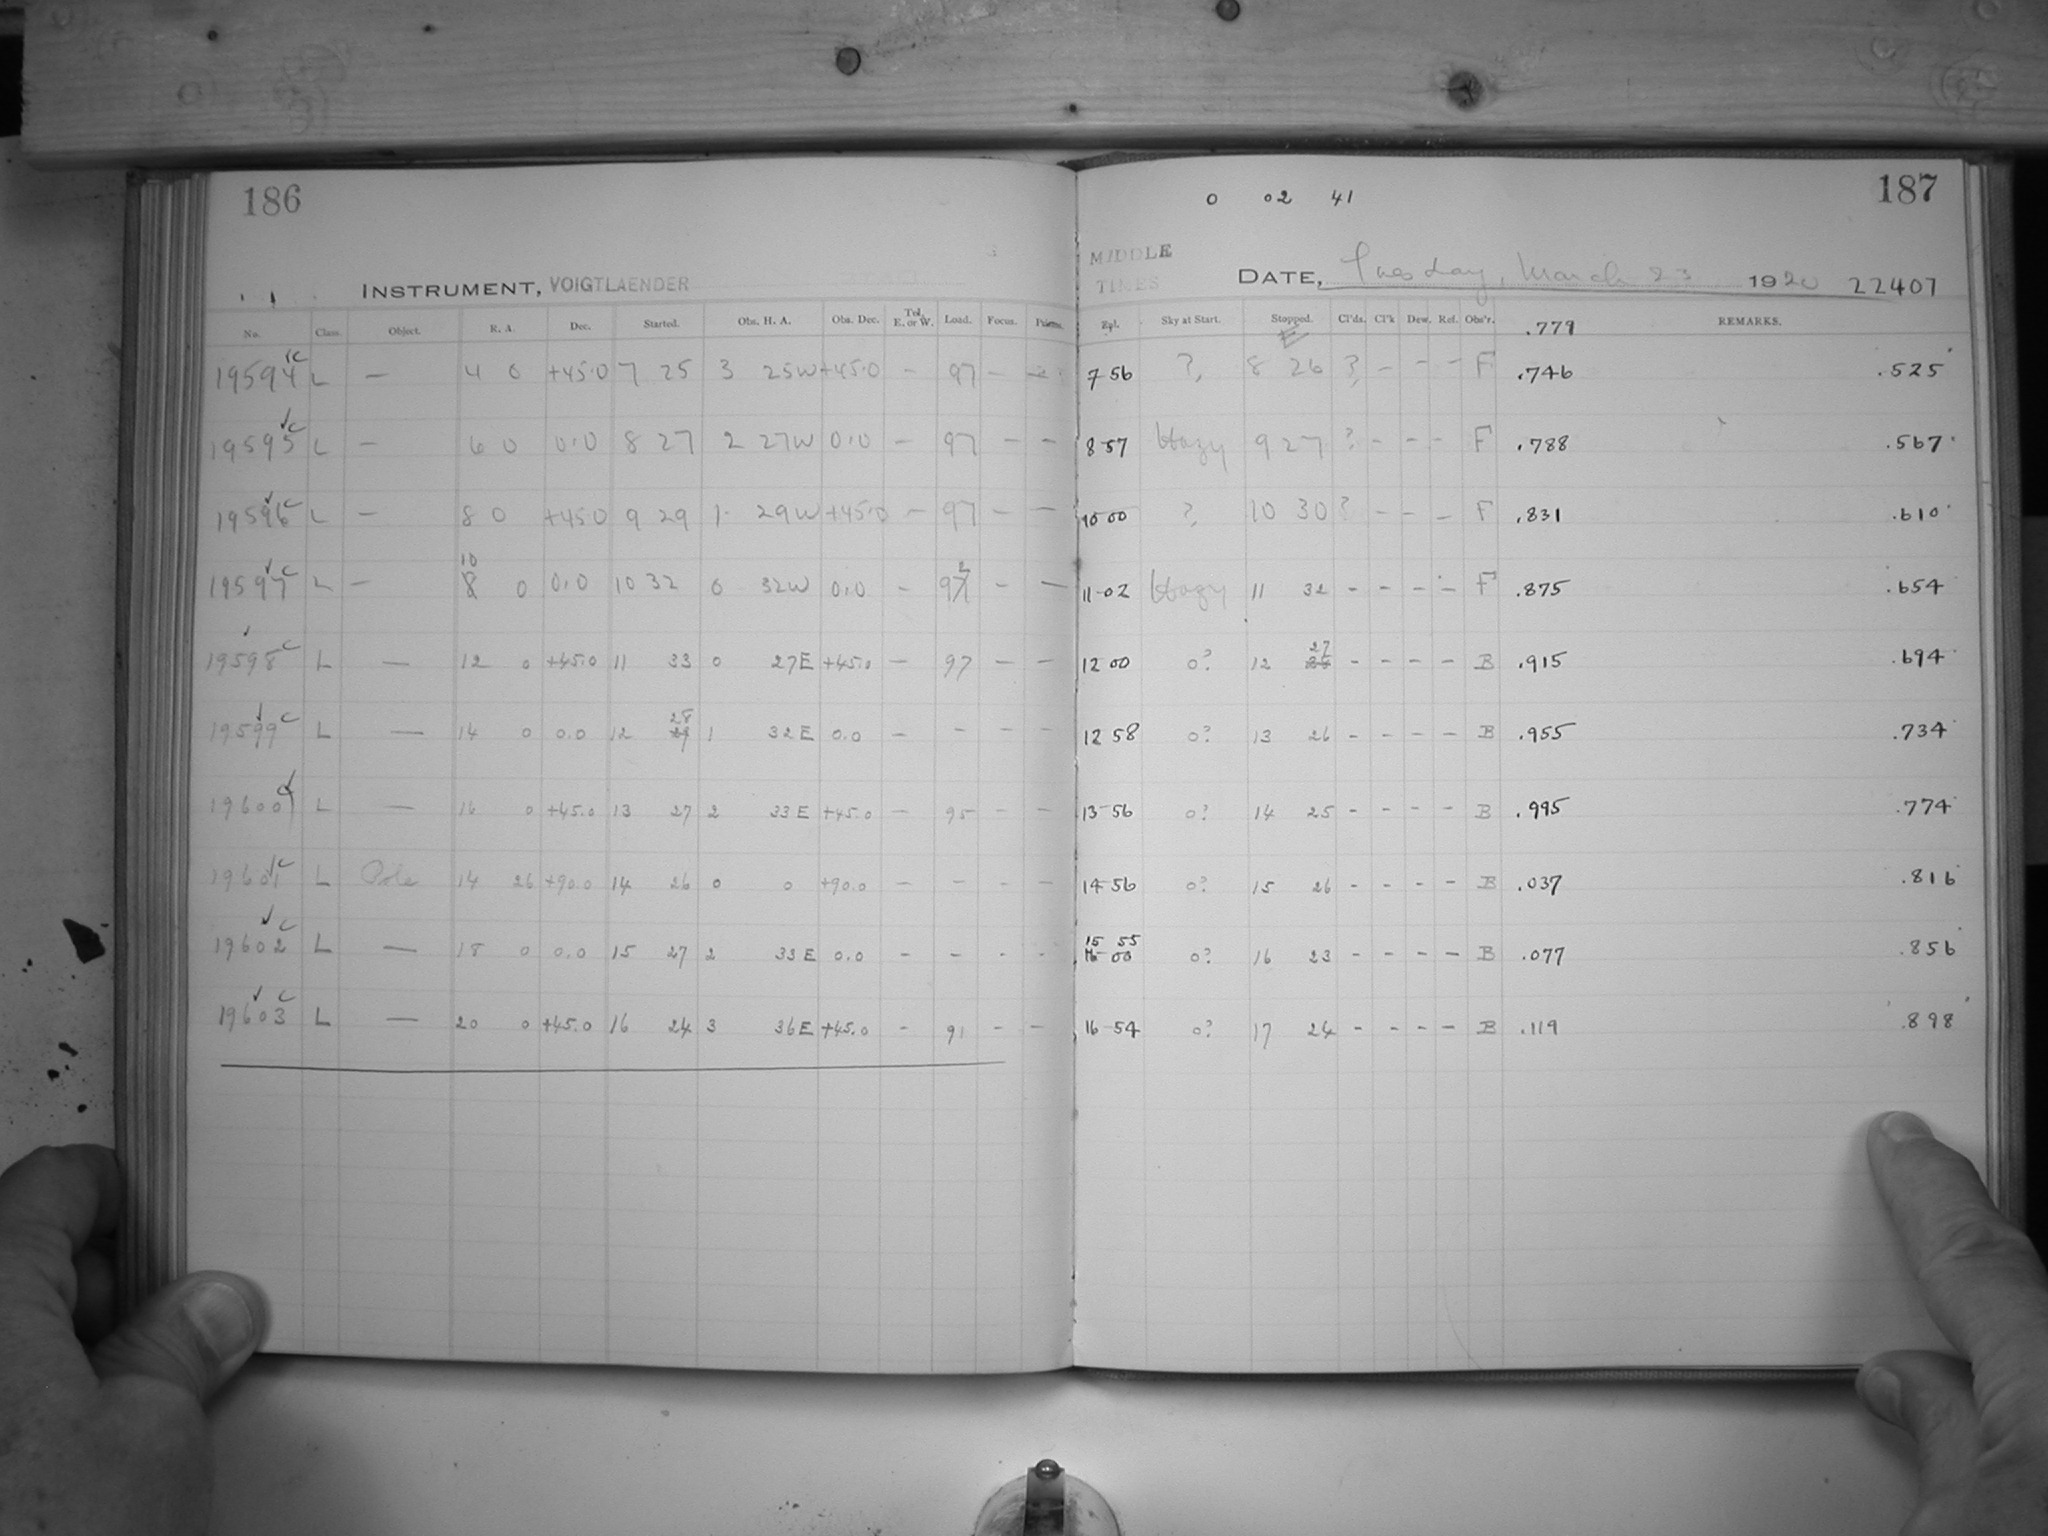 186
INSTRUMENT, VOIGTLAENDER
No. Class. Object. R. A. Dec. Started. Obs. H. A. Obs. Dec. Tel. E. or W. Load. Focus. 
19594 L — 4 0 +45.0 7 25 3 25W +45.0 — 97 —
19595 L — 6 0 0.0 8 27 2 27W 0.0 — 97 — —
19596 L — 8 0 +45.0 9 29 1 29W +45.0 — 97 — —
10
19597 L — 8 0 0.0 10 32 0 32W 0.0 — 97 — —
19598 L — 12 0 +45.0 11 33 0 27E +45.0 — 97 — —
28
19599 L — 14 0 0.0 12 29 1 32E 0.0 — — — —
19600 L — 16 0 +45.0 13 27 2 33E +45.0 — 95 — —
19601 L Pole 14 26 +90.0 14 26 0 0 +90.0 — — — —
19602 L — 18 0 0.0 15 27 2 33E 0.0 — — — —
19603 L — 20 0 +45.0 16 24 3 36E +45.0 — 91 — —
187
0 02 41
MIDDLE
TIMES
DATE, Tuesday, March 23 1920 22407
Epl. Sky at Start. Stopped. Cl'ds. Cl'k Dew. Ref. Obs'r. .779 REMARKS.
E
7 56 ? 8 26 ? — — — F .746 .525
8 57 Hazy 9 27 ? — — — F .788 .567
10 00 ? 10 30 ? — — — F .831 .610
11 02 Hazy 11 32 — — — — F .875 .654
27
12 00 0? 12 — — — — B .915 .694
12 58 0? 13 26 — — — — B .955 .734
13 56 0? 14 25 — — — — B .995 .774
14 56 0? 15 26 — — — — B .037 .816
15 55
16 00 0? 16 23 — — — — B .077 .856
16 54 0? 17 24 — — — — B .119 .898